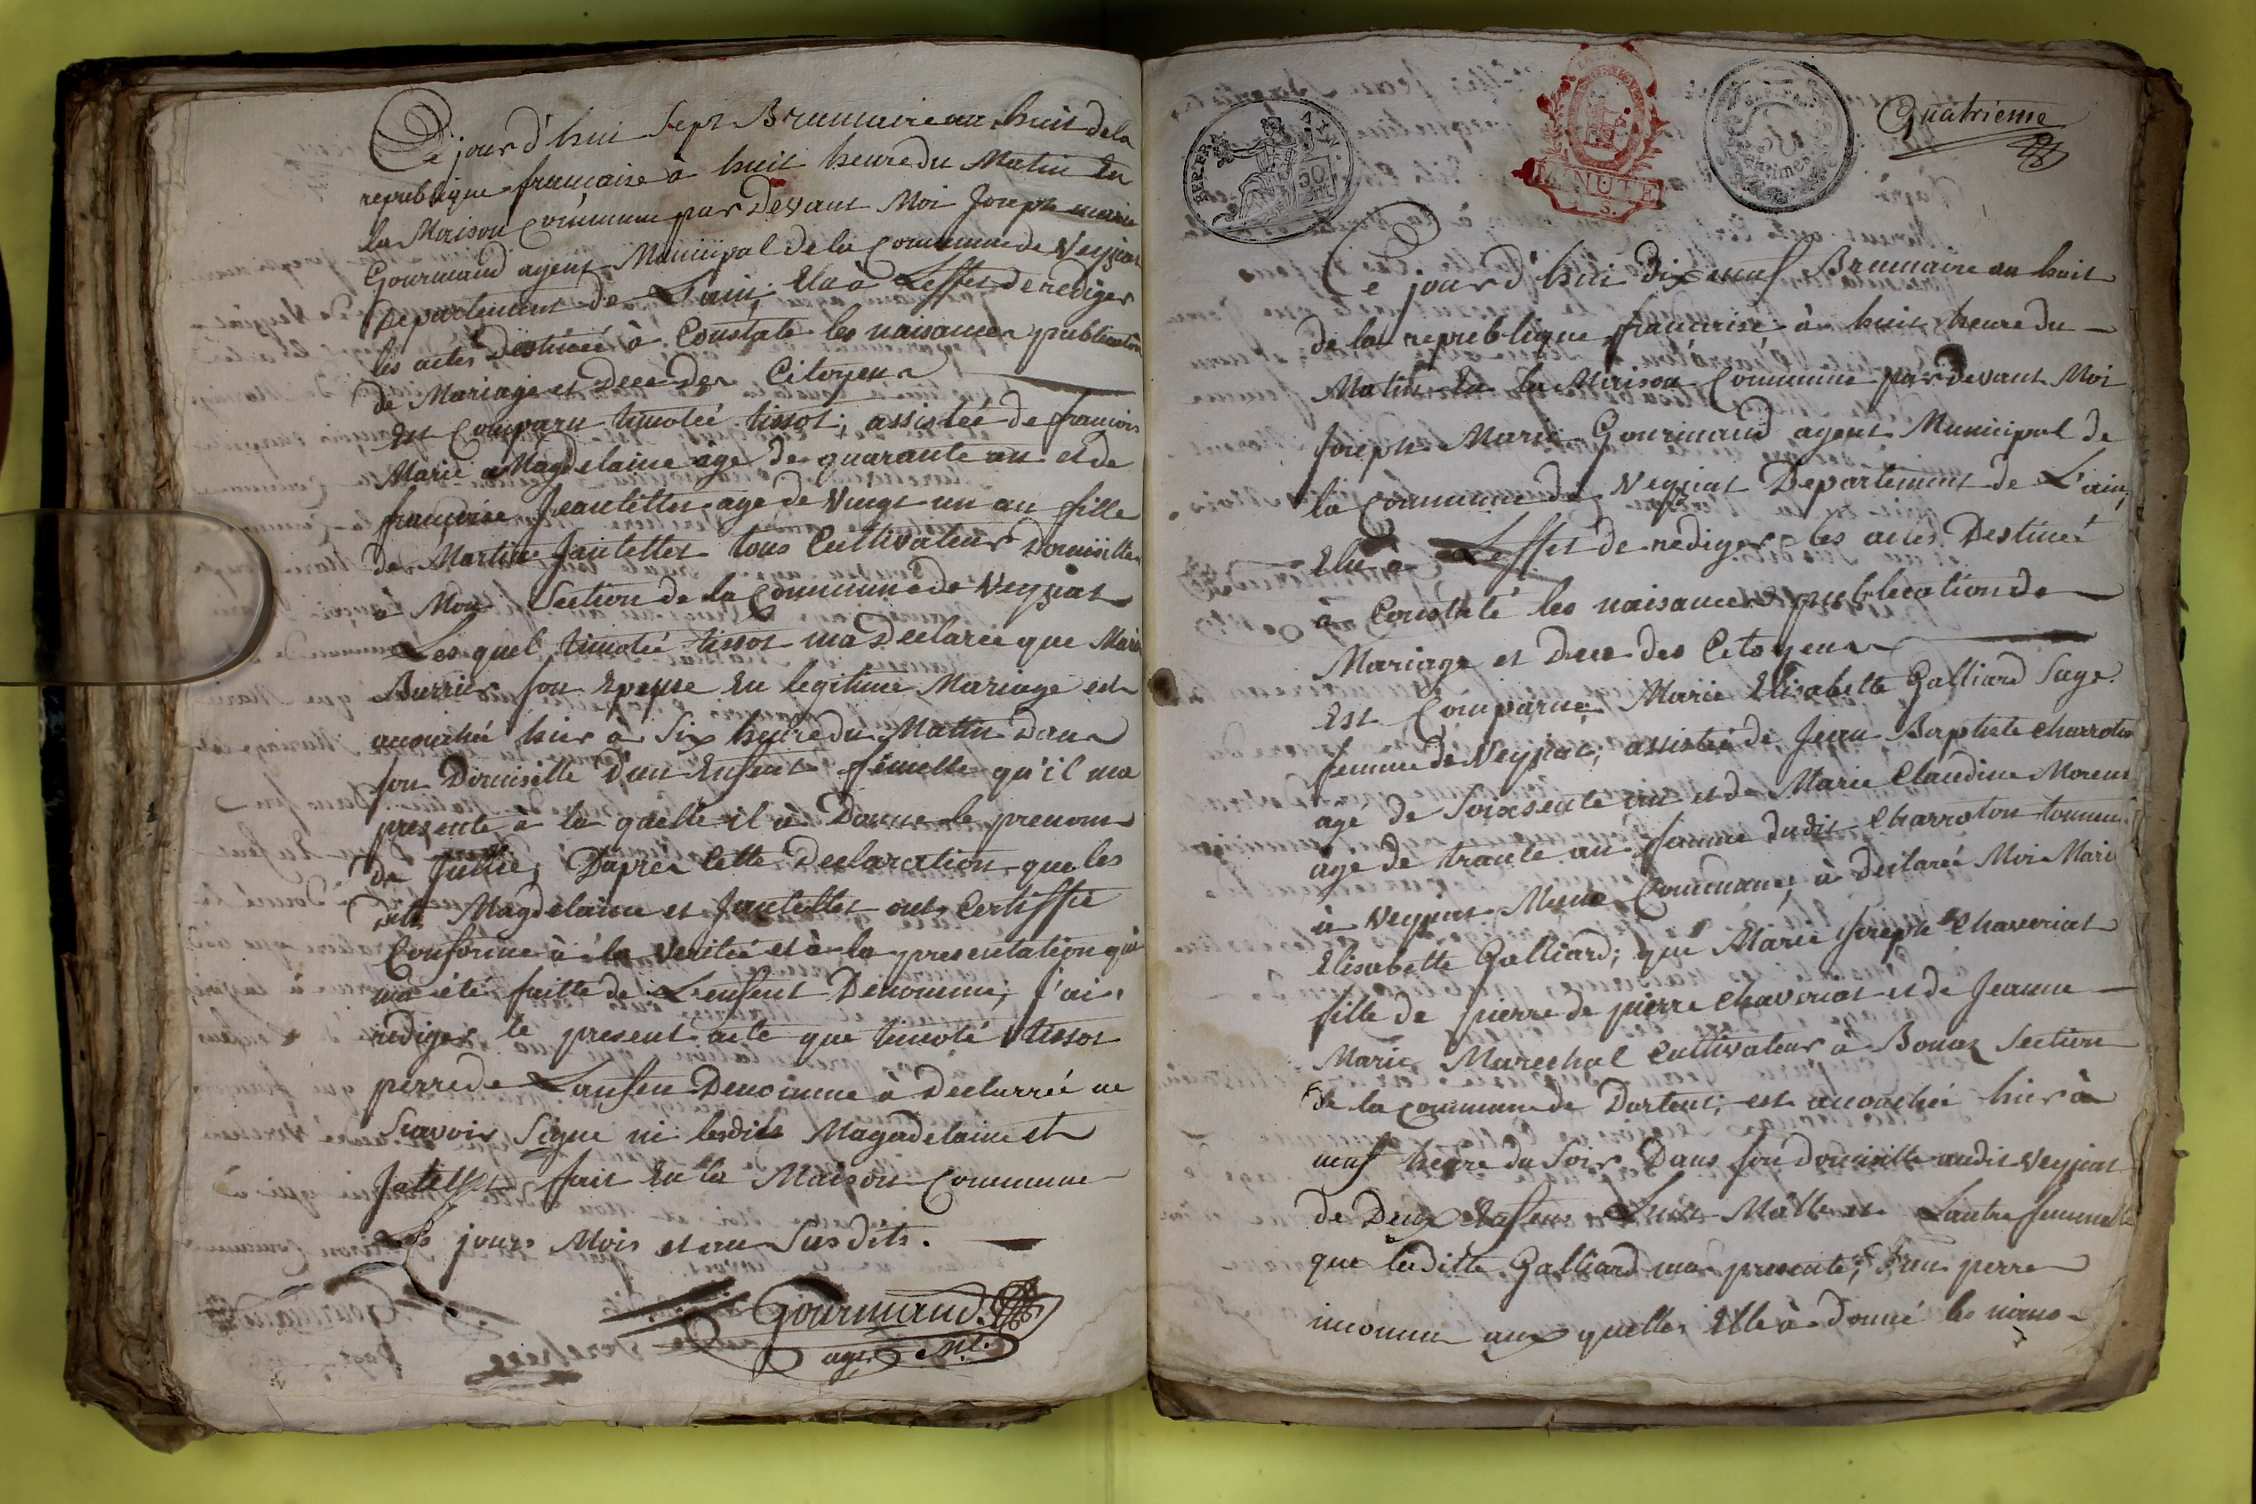 Ce jour d'hui Sept Brumaire an huit de la
republique francaise à huit heure du Matin En
la Maison Commune par Devant Moi Joseph marie
Gourmand agent Municipal de la Commune de Veyziat
Departement de L'ain, Elu à Leffet de rediger
les actes Destinéé à Constate les naisances publication
de Mariage et Deces des Citoyens
Est Comparu timotéé tissot, assistéé de francois
Marie a Magdelaine age de quarante an et de
francoise Jeantettet age de Vingt un an fille
de Martin Jantettet tous Cultivateur Domicilles
à Mons Section de la Commune de Veyziat
Les quel timotéé tissot ma Declaréé que Marie
Burrier son Epouse En legitime Mariage est
acouchéé hier à Six heure du Matin Dans
son Domicille d'un Enfant femelle qu'il ma
presenté à la quelle il à Donne le prenom
de Jullie, Daprès Cette Declaration que les
dits Magdelaine et Jantettet ont Certiffié
Conforme à la veritéé et à la presentation qui
ma été faitte de L'enfent Denommé, j'ai
rediger le present acte que timoté tissot
perre de Lanfen Denomme à Declarréé ne
Scavoir Signe ni lesdits Magadelaine et
fait En la Maison Commune
Les jours Mois et an Susdits.
Gourmand
agt Ml.
Quatrieme
Ce jour d'hui dix neuf Brumaire an huit
de la republique francaise à huit heure du
Matin En la Maison Commune par devant Moi
Joseph Marie Gourmand agent Municipal de
la Commune de Veyziat Departement de L'ain,
Elu à Leffet de rediger les actes Destinéé
à Constaté les naisances publication de
Mariage et Deces des Citoyens
Est Comparue Marie Elisabette Galliard Sage
femme de Veyziat, assistéé de Jean Baptiste Charroton
age de Soixsente an et de Marie Claudine Morent
age de trante an femme dudit Charroton
à Veyziat Meme Commune, à Declaréé Moi Marie
Elisabette Galliard, que Marie Joseph Chaveriat
fille de pierre de pierre Chaveriat et de Jeanne
Marie Marechal Cultivateur à Bouaz Section
de la Commune de Dortent, est acouchéé hier à
neuf heure du Soir Dans son Domicille audit Veyziat
de Deux Enfens L'un Mâlle et Lautre femmelle
que laditte Galliard ma presenté, D'un perre
inconnu aux quelles Elle à Donné les noms